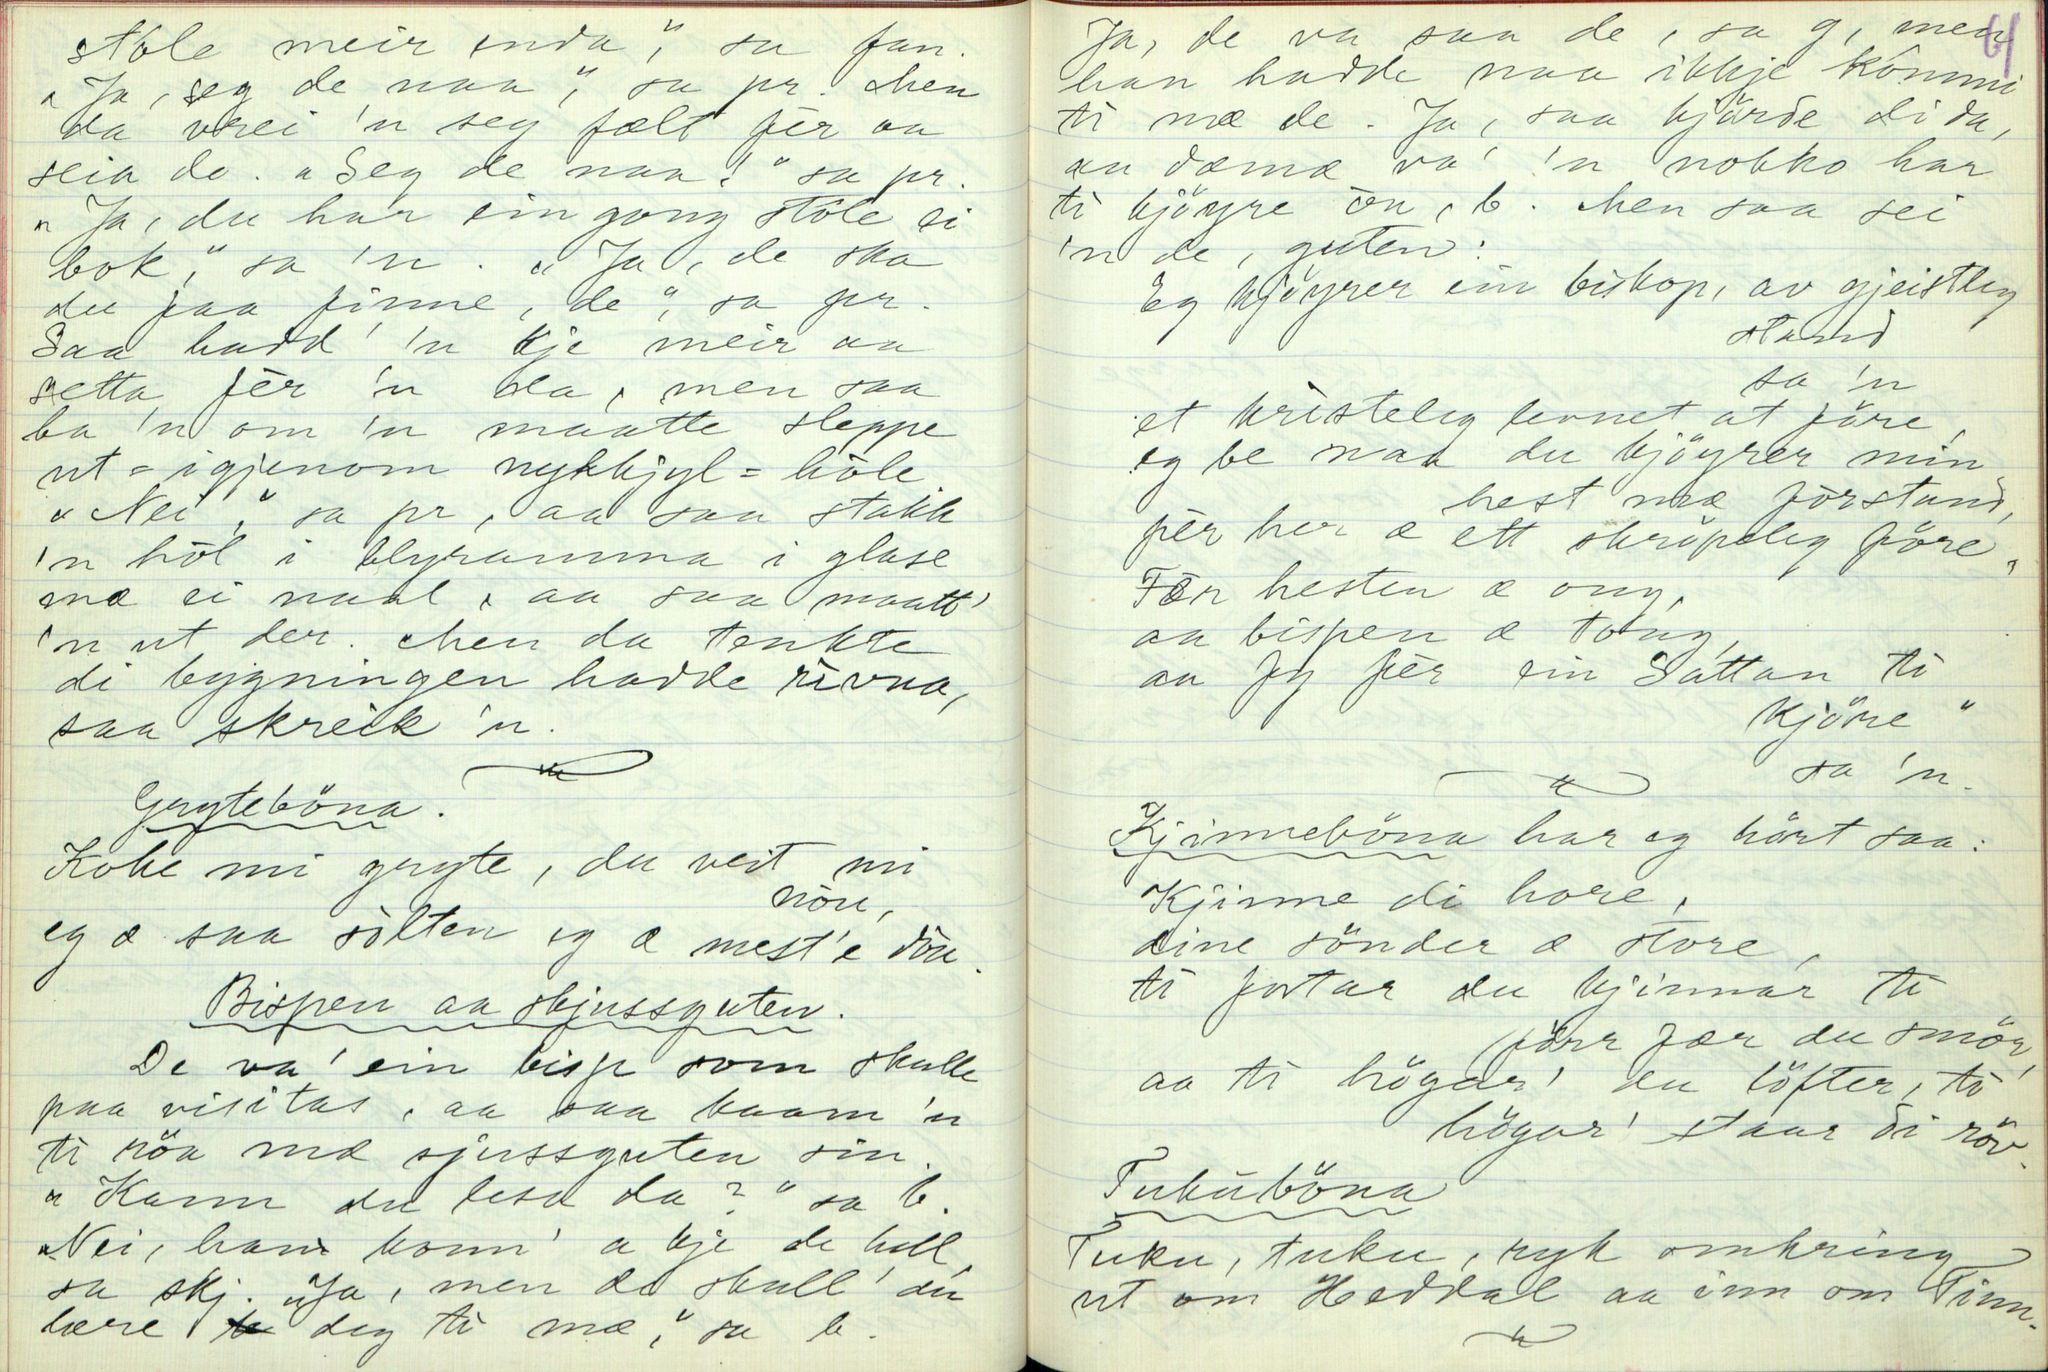 stole meir enda", sa fan.
"Ja, seg de naa", sa pr. Men
da vrei 'n seg fælt fèr aa
seia de. "Seg de naa!" sa pr.
"Ja, du har ein gong stole ei
bok," sa 'n. "Ja, de ska
du faa finne, de", sa pr.
Saa hadd' 'n kje meir aa
setta fèr 'n da, men saa
ba 'n om 'n maatte sleppe
ut = igjenom nykkjyl = hòle.
"Nei", sa pr, aa saa stakk
'n hòl i blyramma i glase
mæ ei naal, aa saa maatt'
'n ut der. Men da tenkte
di bygningen hadde rivna,
saa skreik 'n.
Gryteböna.
Koke mi gryte, du veit mi
nöu,
eg æ saa sölten eg æ mest'e döu.
Bispen aa skjussguten.
De va' ein bisp som skulle
paa visitas, aa saa kaam 'n
ti röa mæ sjussguten sin.
"Kann du lesa da?" sa b.
"Nei, han konn' a kje de hell,
sa skj. "Ja, men de skull' du
lære deg ti mæ," sa b.
61
Ja, de va saa de, sa g, men
han hadde naa ikkje kömmi
ti mæ de. Ja, saa kjörde di da,
aa dæmæ va' 'n nokko har
ti kjöyre òn, b. Men saa sei
'n de, guten:
Eg kjöyrer ein biskop, av gjeistleg
stand
sa 'n
et kristeleg levnet at före,
eg be naa du kjöyrer min
hest mæ förstand,
fèr her æ ett skröpeleg före,
Fèr hesten æ ong,
aa bispen æ tong,
aa Jeg fèr ein Sattan ti
kjöre"
sa 'n.
Kjinneböna har eg hört saa:
Kjinne di hore,
dine sönder æ store,
ti fortar du kjinnar ti
förr fær du smör,
aa ti högar' du löfter, ti
högar' staar di röv.
Tukuböna
Tuku, tuku, ryk omkring
ut om Heddal aa inn om Tinn.